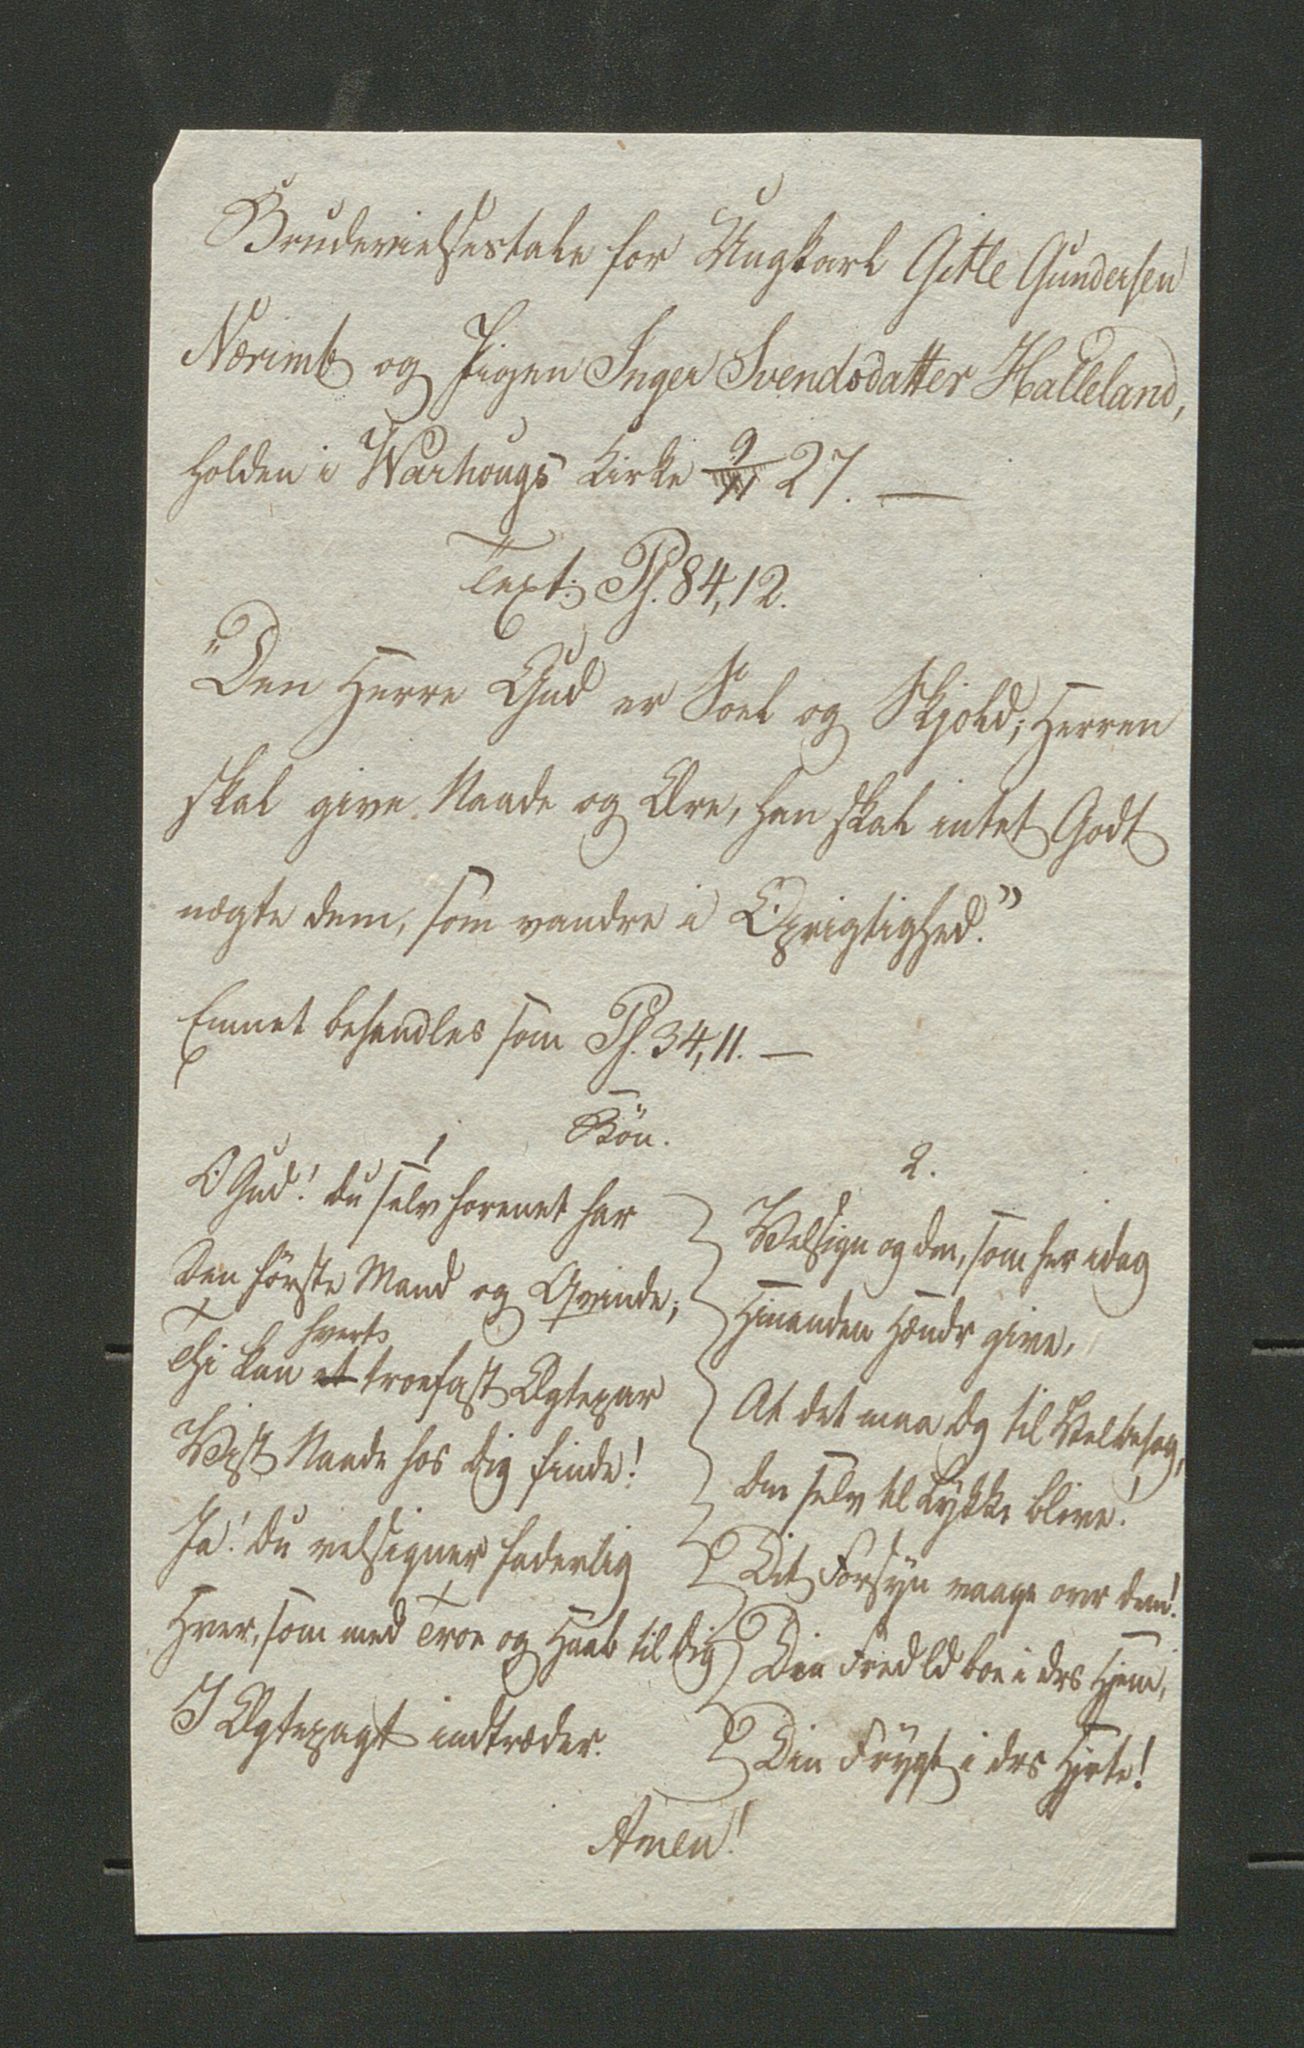 Brudevielsestale for Ungkarl Gitle Gundersen
Nærimb og Pigen Inger Svendsdatter Halleland,
holden i Warhougs Kirke 9/11 27. —
Text: Ps. 84,12.
"Den Herre Gud er Soel og Skjold; Herren
skal give Naade og Ære, han skal intet Godt
nægte dem, som vandre i Oprigtighed."
Emnet behandles som Ps. 34,11. —
Bøn.
1
O Gud! du selv forenet har
Den første Mand og Qvinde;
hvert
Thi kan et troefast Ægtepar
Vist Naade hos dig finde!
Ja! du velsigner faderlig
Hver, som med Troe og Haab til dig
I Ægtepagt indtræder.
2.
Velsign og dem, som her idag
Hinanden Hænder give,
At det maa dig til Velbehag,
dem selv til Lykke blive!
Dit Forsyn vaage over dem!
Din Fred ld boe i drs Hjem,
Din Frygt i drs Hjerte!
Amen!